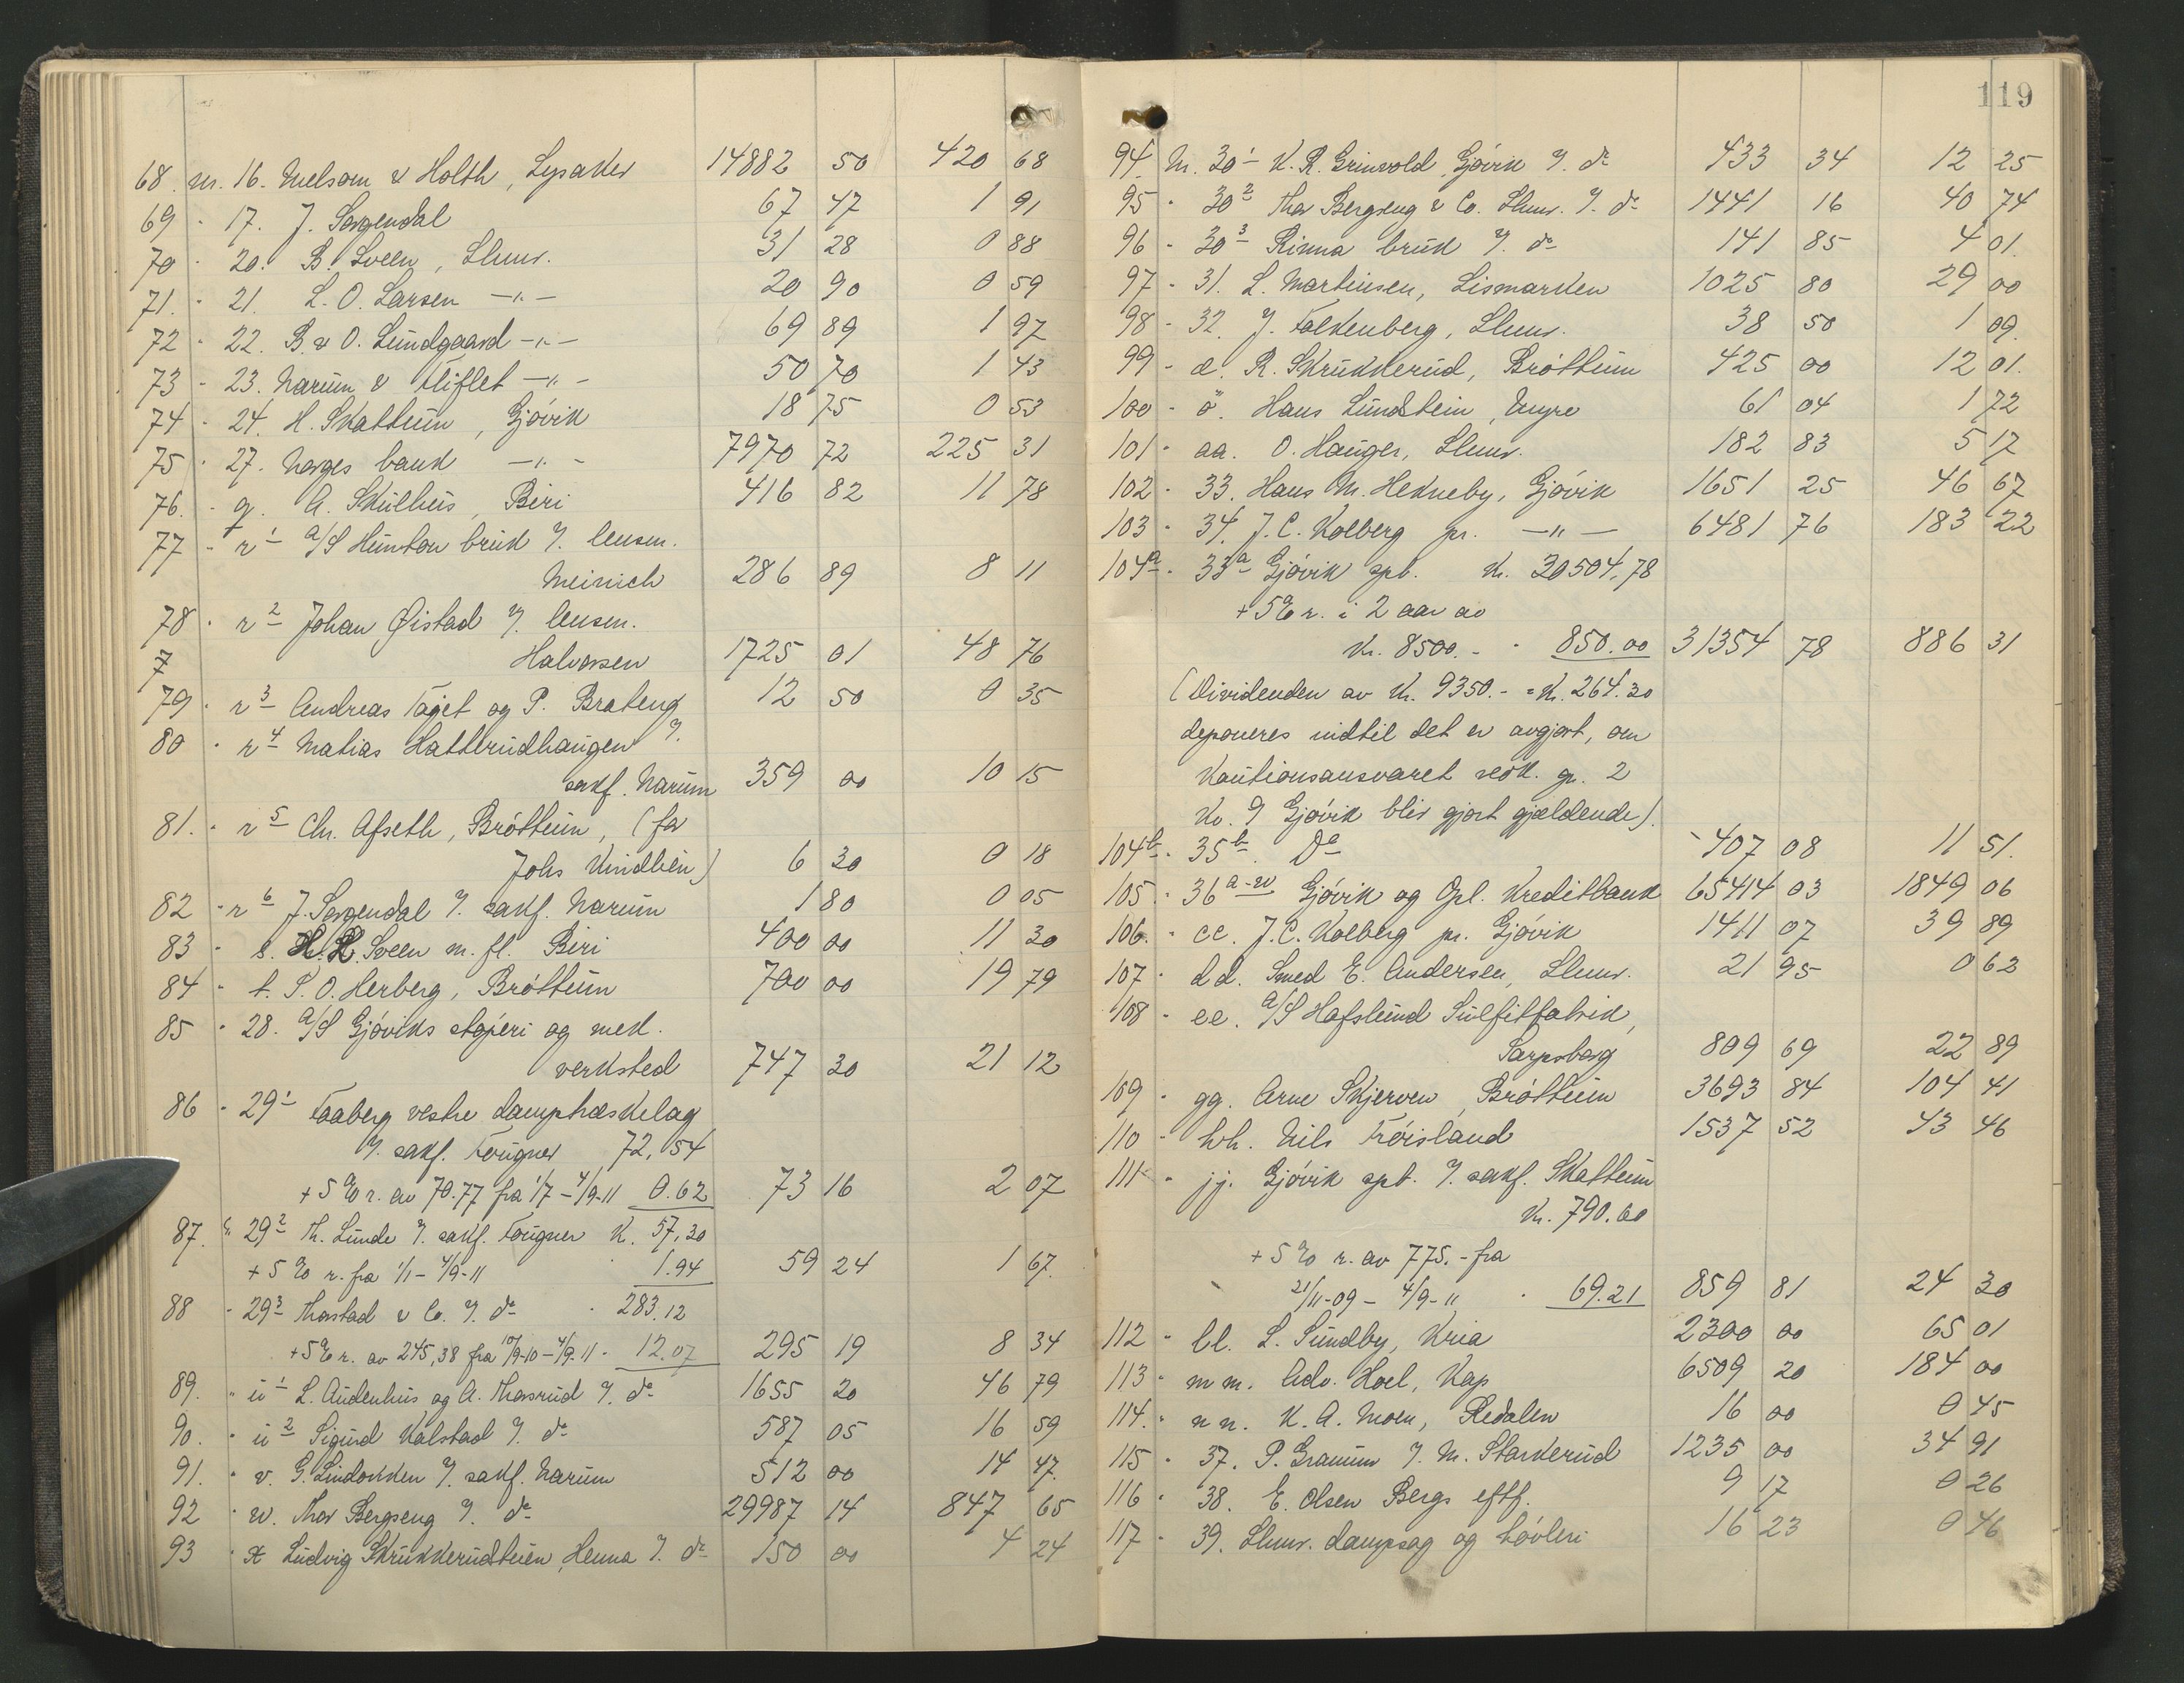 68. nr. 16. Nelson & Holth, Lysaker 14882 50 420 68
69 - 17. J. Sorgendal 67 47 1 91
70 - 20. B. Sveen, Lhmr. 31 28 0 88
71. - 21. L. O. Larsen —"— 20 90 0 59
72 - 22. B. & O. Lundgaard —"— 69 89 1 97
73 - 23. Narum & Fliflet —"— 50 70 1 43
74 - 24. H. Skattum, Gjövik 18 75 0 53
75 - 27. Norges bank —"— 7970 72 225 31
76. - q. A. Skulhus, Biri 416 82 11 78
77 - r 1 A/S Hunton bruk v. lensm.
Meinich 286 89 8 11
78 - r 2 Johan Øistad v. lensm.
7 Halvorsen 1725 01 48 76
79 - r 3 Andreas Taget og P. Brateng 12 50 0 35
80 - r 4 Matias Hatterudhaugen v.
sakf. Narum 359 00 10 15
81. - r 5 Chr. Afseth, Bröttum, (for
Johs Kindlien) 6 30 0 18
82 - r 6 J. Sorgendal v. sakf. Narum 1 80 0 05
83 - s. H. R. Sveen m. fl. Biri 400 00 11 30
84 - t. P. O. Herberg, Bröttum 700 00 19 79
85 - 28. A/S Gjöviks stöperi og mek.
verksted 747 30 21 12
86 - 29 1 Faaberg vestre damptræskelag
v. sakf. Fougner 72,54
+ 5 % r. av 70.77 fra 1/7 - 4/9-11 0.62 73 16 2 07
87. " 29 2 Th. Lunde v. sakf. Fougner K. 57,30
+ 5 % r. fra 1/1 - 4/9-11 1.94 59 24 1 67
88 - 29 3 Thorstad & Co. v. do - 283.12
+ 5 % r. av 245,38 fra 10/9-10 - 4/9-11 - 12.07 295 19 8 34
89. " u 1 L. Audenhus og A. Thorsrud v. do 1655 20 46 79
90. - u 2 Sigurd Kalstad v. do 587 05 16 59
91. " v. G. Lindokken v. sakf. Narum 512 00 14 47
92 - w. Thor Bergseng v. do 29987 14 847 65
93 - x Ludvig Skrukkerudstuen, Henna v. do 150 00 4 24
119
94. Nr. 30 1 K. R. Grinvold, Gjövik v. do 433 34 12 25
95 - 30 2 Thor Bergseng & Co. Lhmr. v. do 1441 16 40 74
96 - 30 3 Rinna bruk v. do 141 85 4 01.
97 - 31. L. Martinsen, Lismarken 1025 80 29 00
98 - 32. J. Falkenberg, Lhmr. 38 50 1 09.
99 - æ. R. Skrukkerud, Bröttum 425 00 12 01.
100 - ö. Hans Lundstein, Myre 61 04 1 72
101 - aa. O. Hauger, Lhmr. 182 83 5 17
102 - 33. Hans M. Hekneby, Gjövik 1651 25 46 67
103 - 34. J. C. Kolberg pr. —"— 6481 76 183 22
104a - 35a Gjövik spb. Kr. 30504,78
+ 5 % r. i 2 aar av
Kr. 8500.- - 850.00 31354 78 886 31
(Dividenden av Kr. 9350.- = Kr. 264.30
deponeres indtil det er avgjort, om
Kautionsansvaret vedk. gr. 2
Kv. 9 Gjövik blir gjort gjældende).
104b - 35b. Do - 407 08 11 51.
105 - 36 a-w Gjövik og Opl. Kreditbank 65414 03 1849 06
106. - cc. J. C. Kolberg pr. Gjövik 1411 07 39 89
107 - dd. Smed E. Andersen, Lhmr. 21 95 0 62
108 - ee. A/S Hafslund Sulfitfabrik,
Sarpsborg 809 69 22 89
109 - gg. Arne Skjerven, Bröttum 3693 84 104 41
110 - hh. Nils Fröisland 1537 52 43 46
111 - jj. Gjövik spb. v. sakf. Skattum
Kr. 790.60
+ 5 % r. av 775.- fra
21/11-09 - 4/9-11 - 69.21 859 81 24 30
112 - ll. L. Sundby, Kria 2300 00 65 01
113 - mm. Adv. Hoel, Kap 6509 20 184 00
114. - nn. K. A. Moen, Redalen 16 00 0 45
115 - 37. P. Granum v. M. Starkerud 1235 00 34 91
116 - 38. E. Olsen Bergs eftf. 9 17 0 26
117 - 39. Lhmr. dampsag og hövleri 16 23 0 46